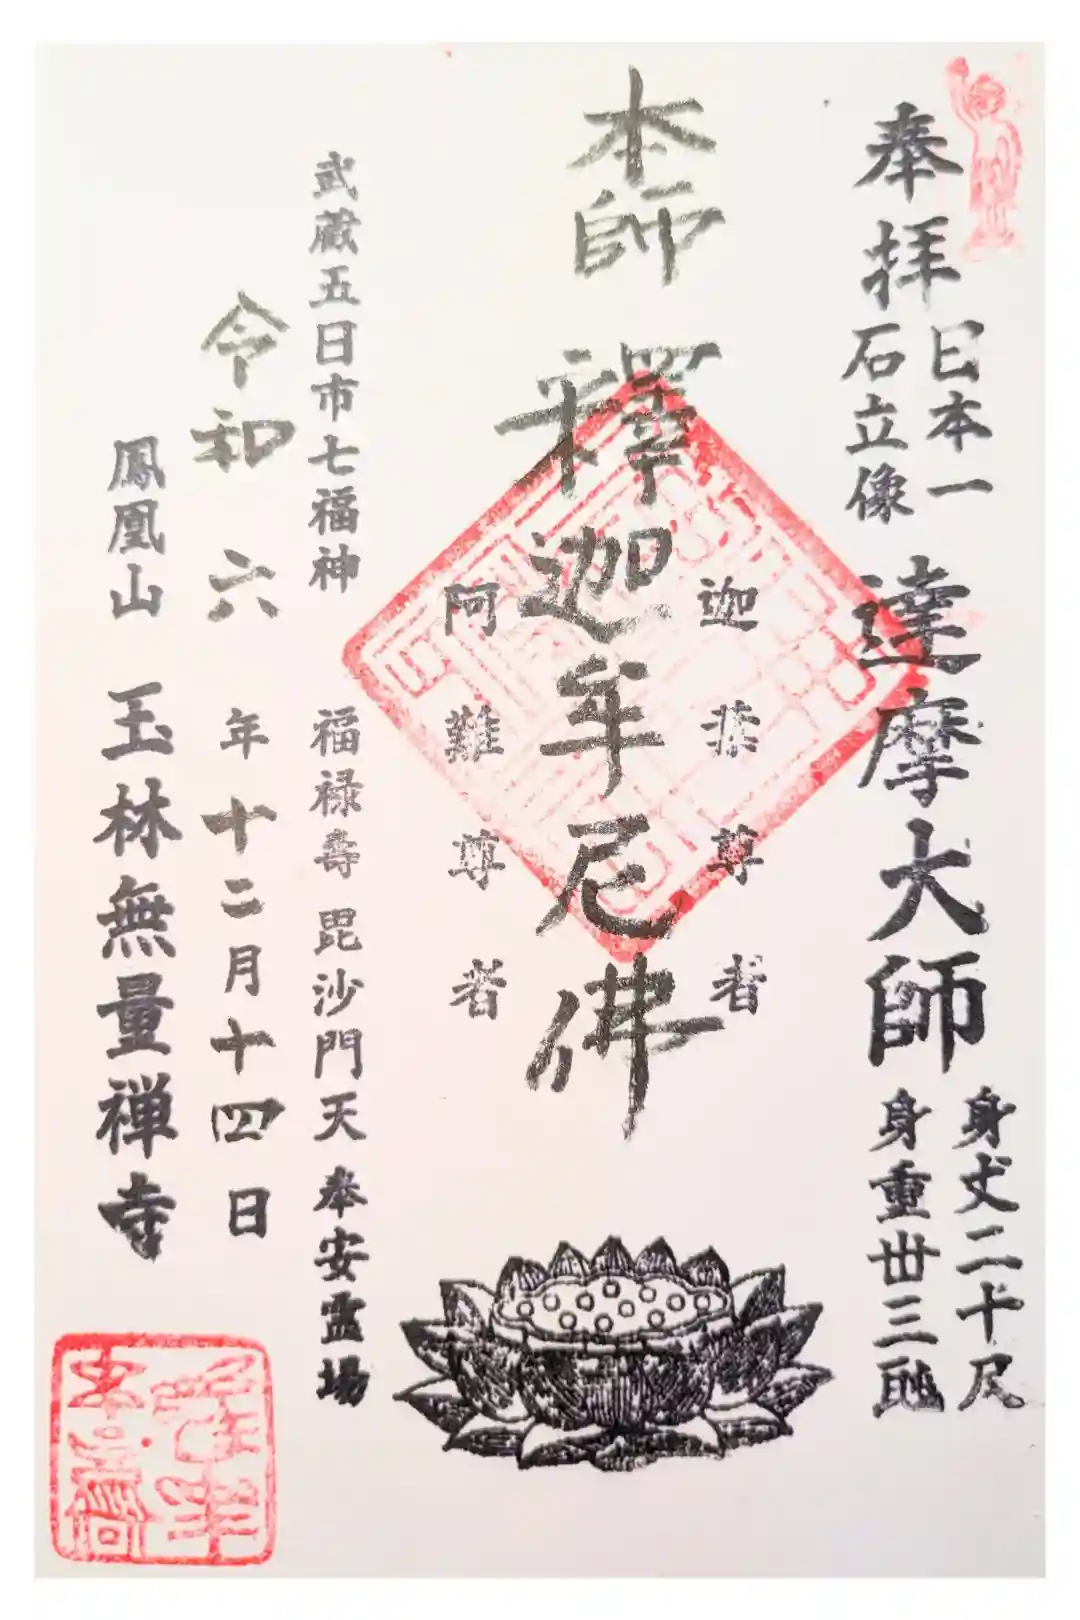 奉拝
日本一
石立像
達摩大師
身丈二十尺
身重丗三瓲
迦葉尊者
本師 釋迦牟尼佛
阿難尊者
武蔵五日市七福神 福禄壽 毘沙門天 奉安霊場
令和六年十二月十四日
鳳凰山 玉林無量禅寺